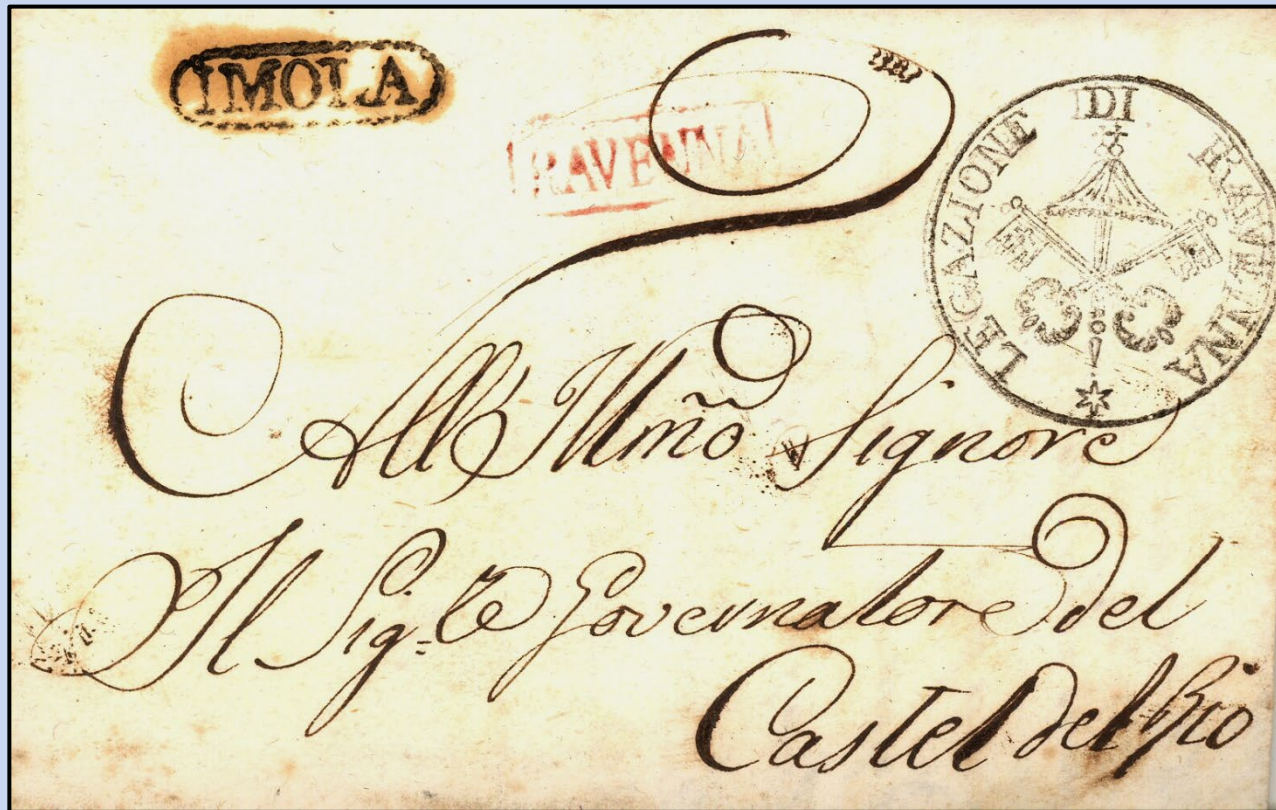 IMOLA
RAVENNA
LEGAZIONE DI RAVENNA
All' Illmo Signore
Il Sig.re Governatore del
Castel del Rio